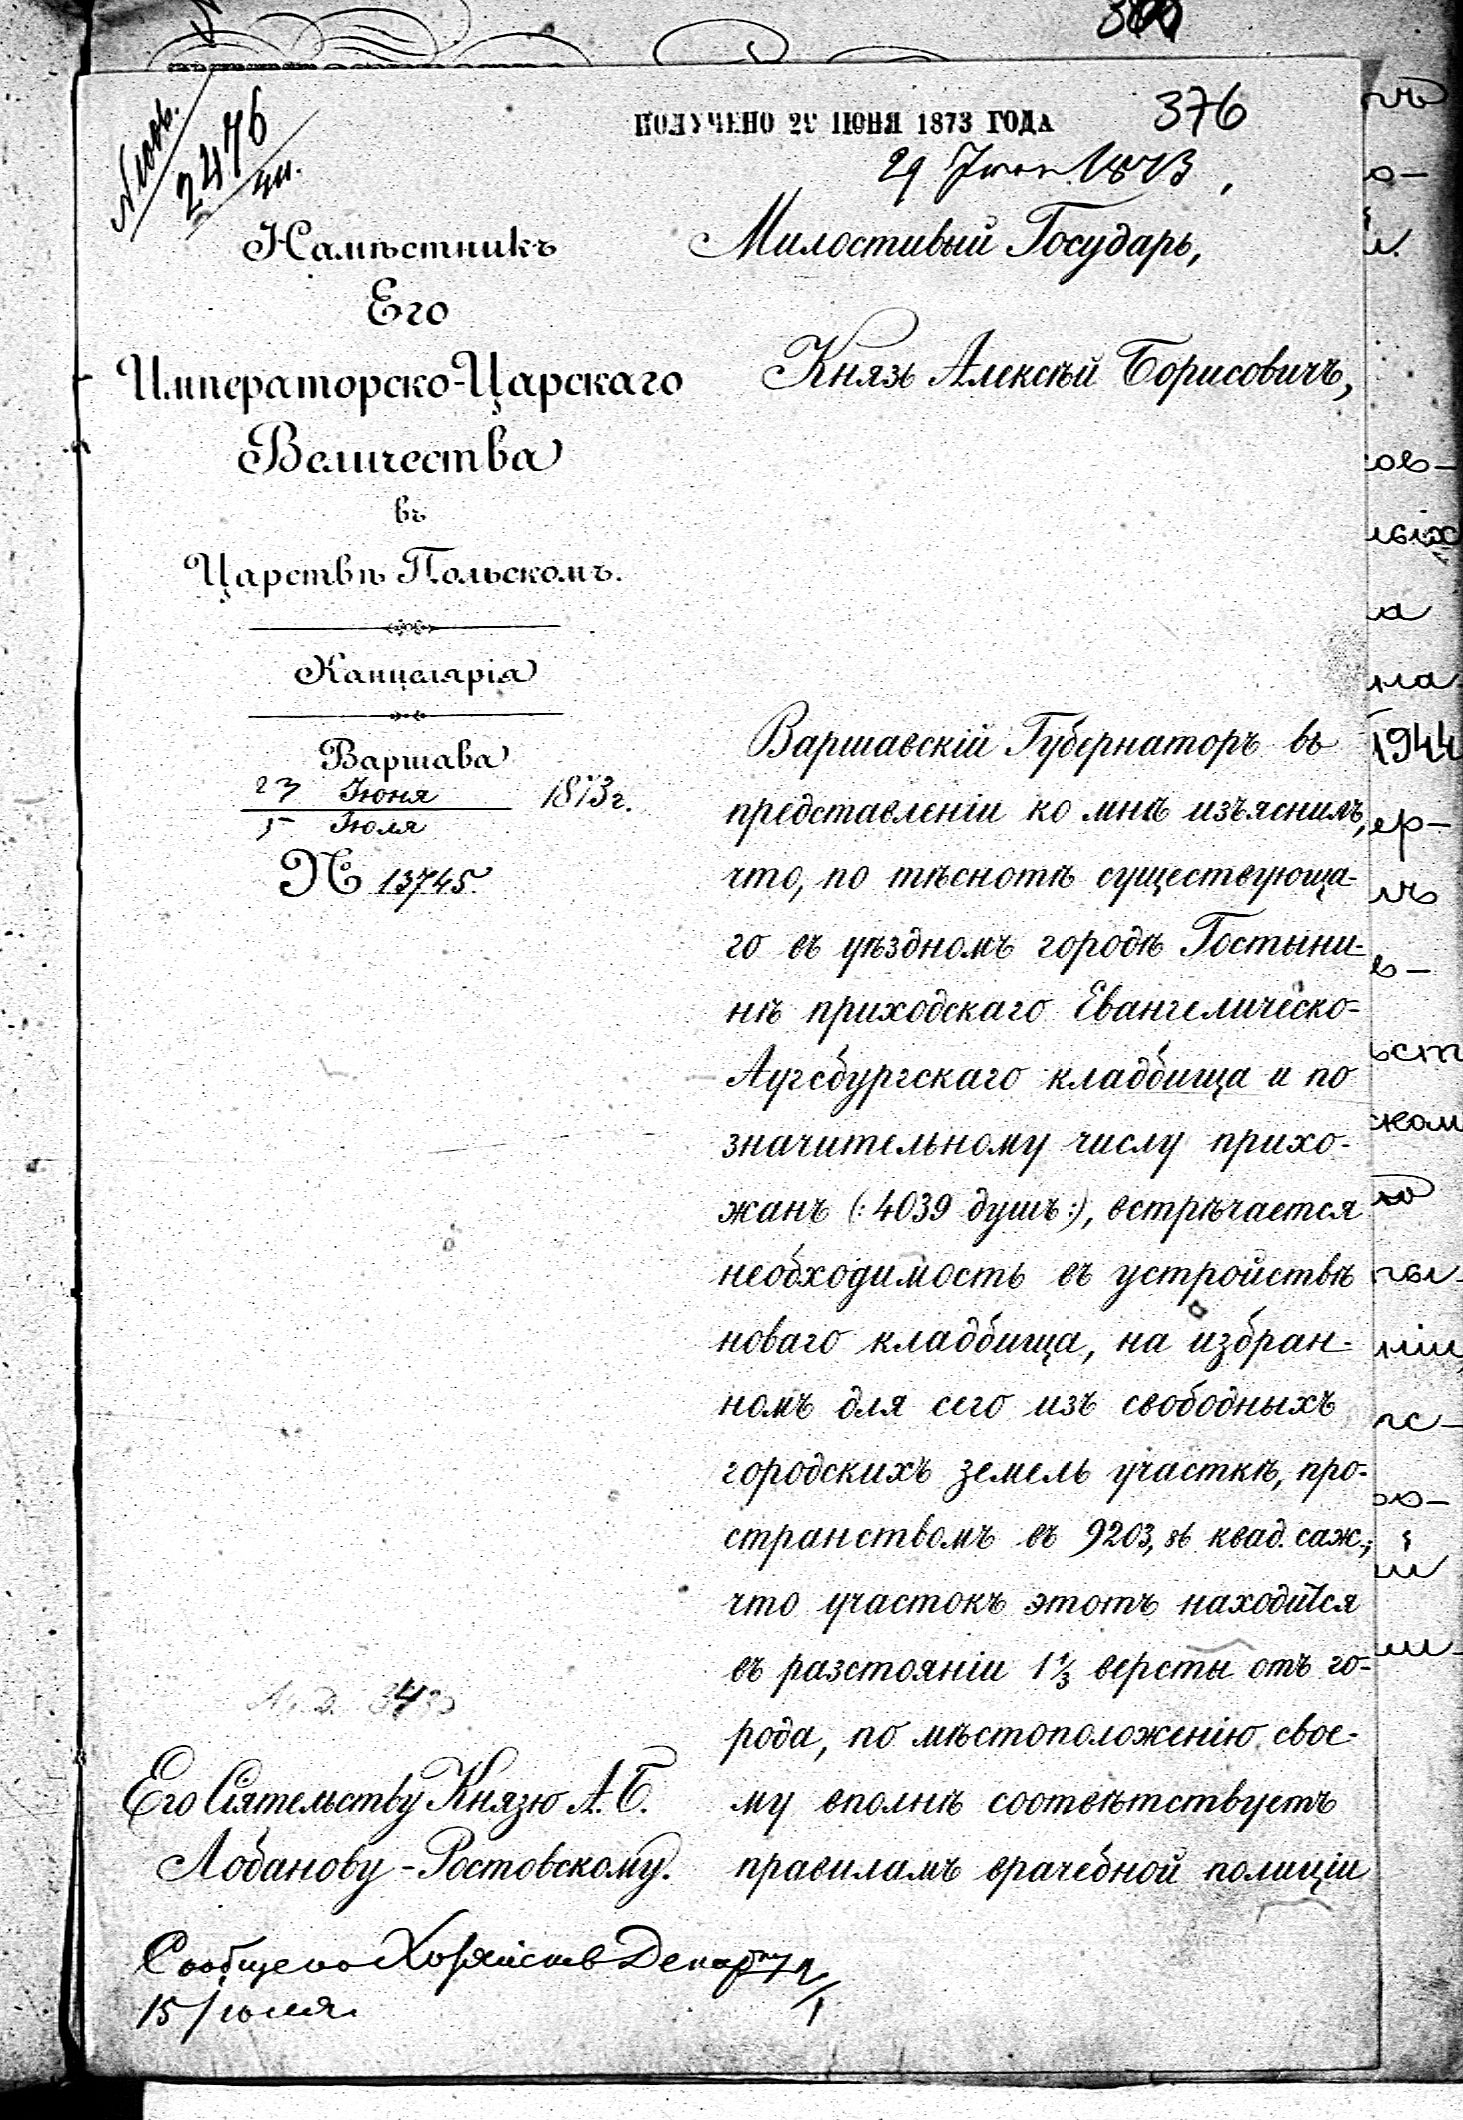 376
ПОЛУЧЕНО 29 ІЮНЯ 1873 ГОДА
2476
29 Іюня 1873
Намѣстникъ
Его
Императорско-Царскаго
Величества
въ
Царствѣ Польскомъ.
Канцелярія
Варшава
23 Іюня 1873 г.
5 Іюля
№ 13745.
Милостивый Государь,
Князь Алексѣй Борисовичъ,
Варшавскій Губернаторъ въ
представленіи ко мнѣ изъяснилъ,
что, по тѣснотѣ существующа-
го въ уѣздномъ городѣ Гостыни-
нѣ приходскаго Евангелическо-
Аугсбургскаго кладбища и по
значительному числу прихо-
жанъ (: 4039 душъ :), встрѣчается
необходимость въ устройствѣ
новаго кладбища, на избран-
номъ для сего изъ свободныхъ
городскихъ земель участкѣ, про-
странствомъ въ 9203,86 квад. саж.;
что участокъ этотъ находится
въ разстояніи 1⅓ версты отъ го-
рода, по мѣстоположенію свое-
му вполнѣ соотвѣтствуетъ
правиламъ врачебной полиціи
Его Сіятельству Князю А. Б.
Лобанову-Ростовскому.
Сообщено Хозяйств Департ
15 Іюля